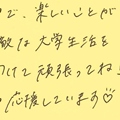 で、楽しいことが
敵な大学生活を
つけて頑張ってね
応援しています♡